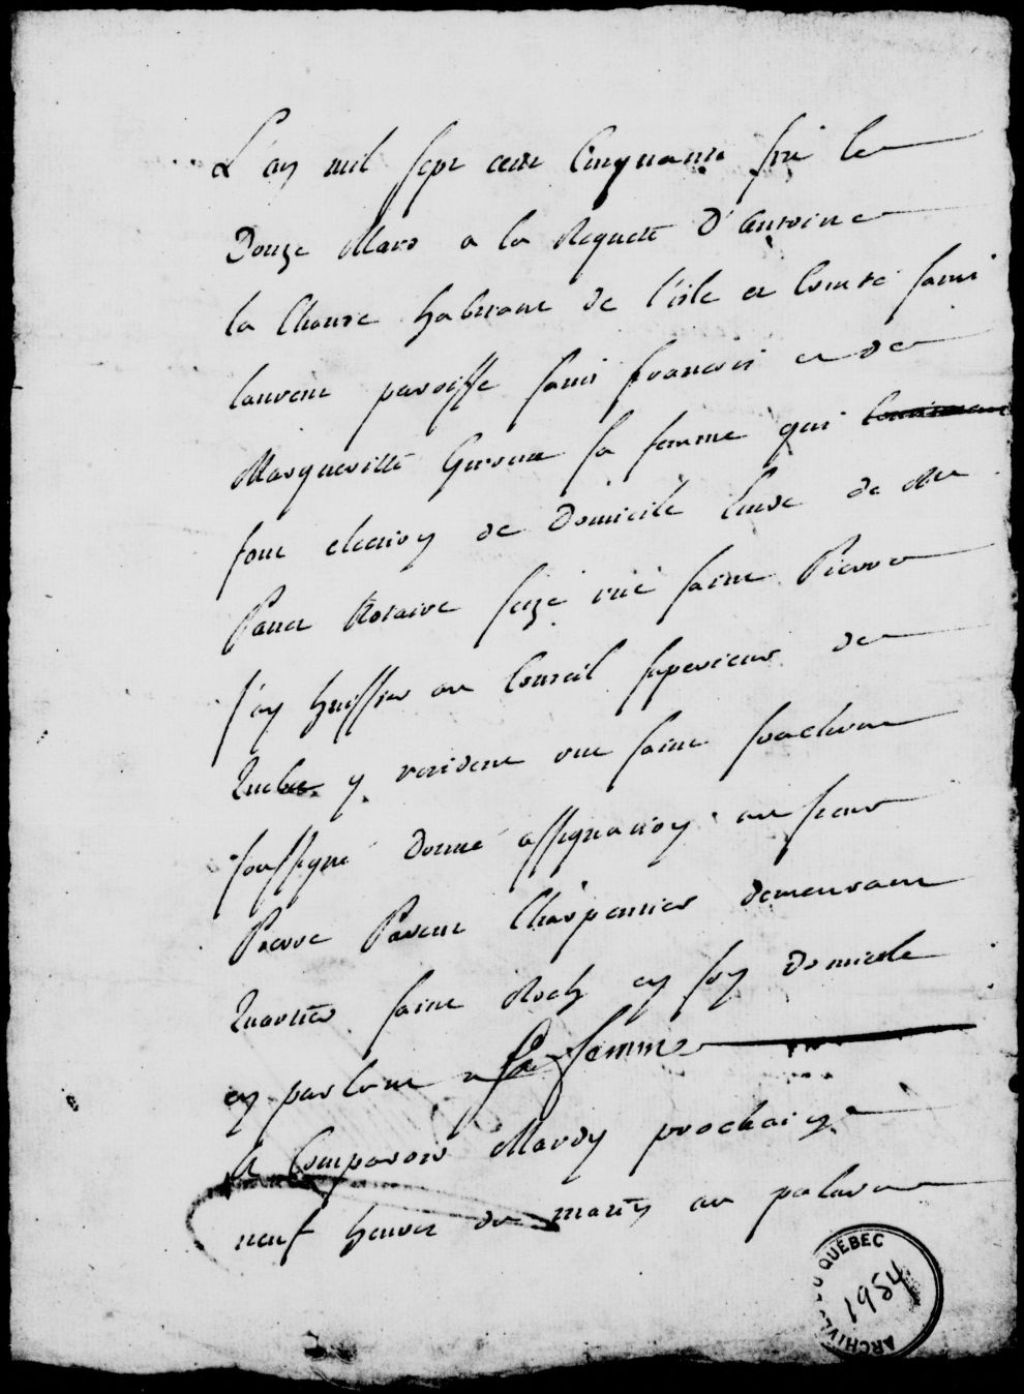 L'an mil sept cent Cinquante six le
Douze Mars a la Requete D'antoine
la Chause habitant de l'isle et Comté saint
laurent paroisse saint francois et de
Margueritte Giroux sa femme qui
font election de Domicile Ches de Me
Panet Notaire size rüe saint Pierre
J'ay huissier au Conseil superieur de
Quebec y residant rue saint
soussigné Donné assignation au sieur
Pierre Parent Charpentier demeurant
Quartier saint Roch en son domicile
en parlant a sa femme
a Comparoir Mardy prochain
neuf heures du matin au palais
ARCHIVES DU QUÉBEC
1954